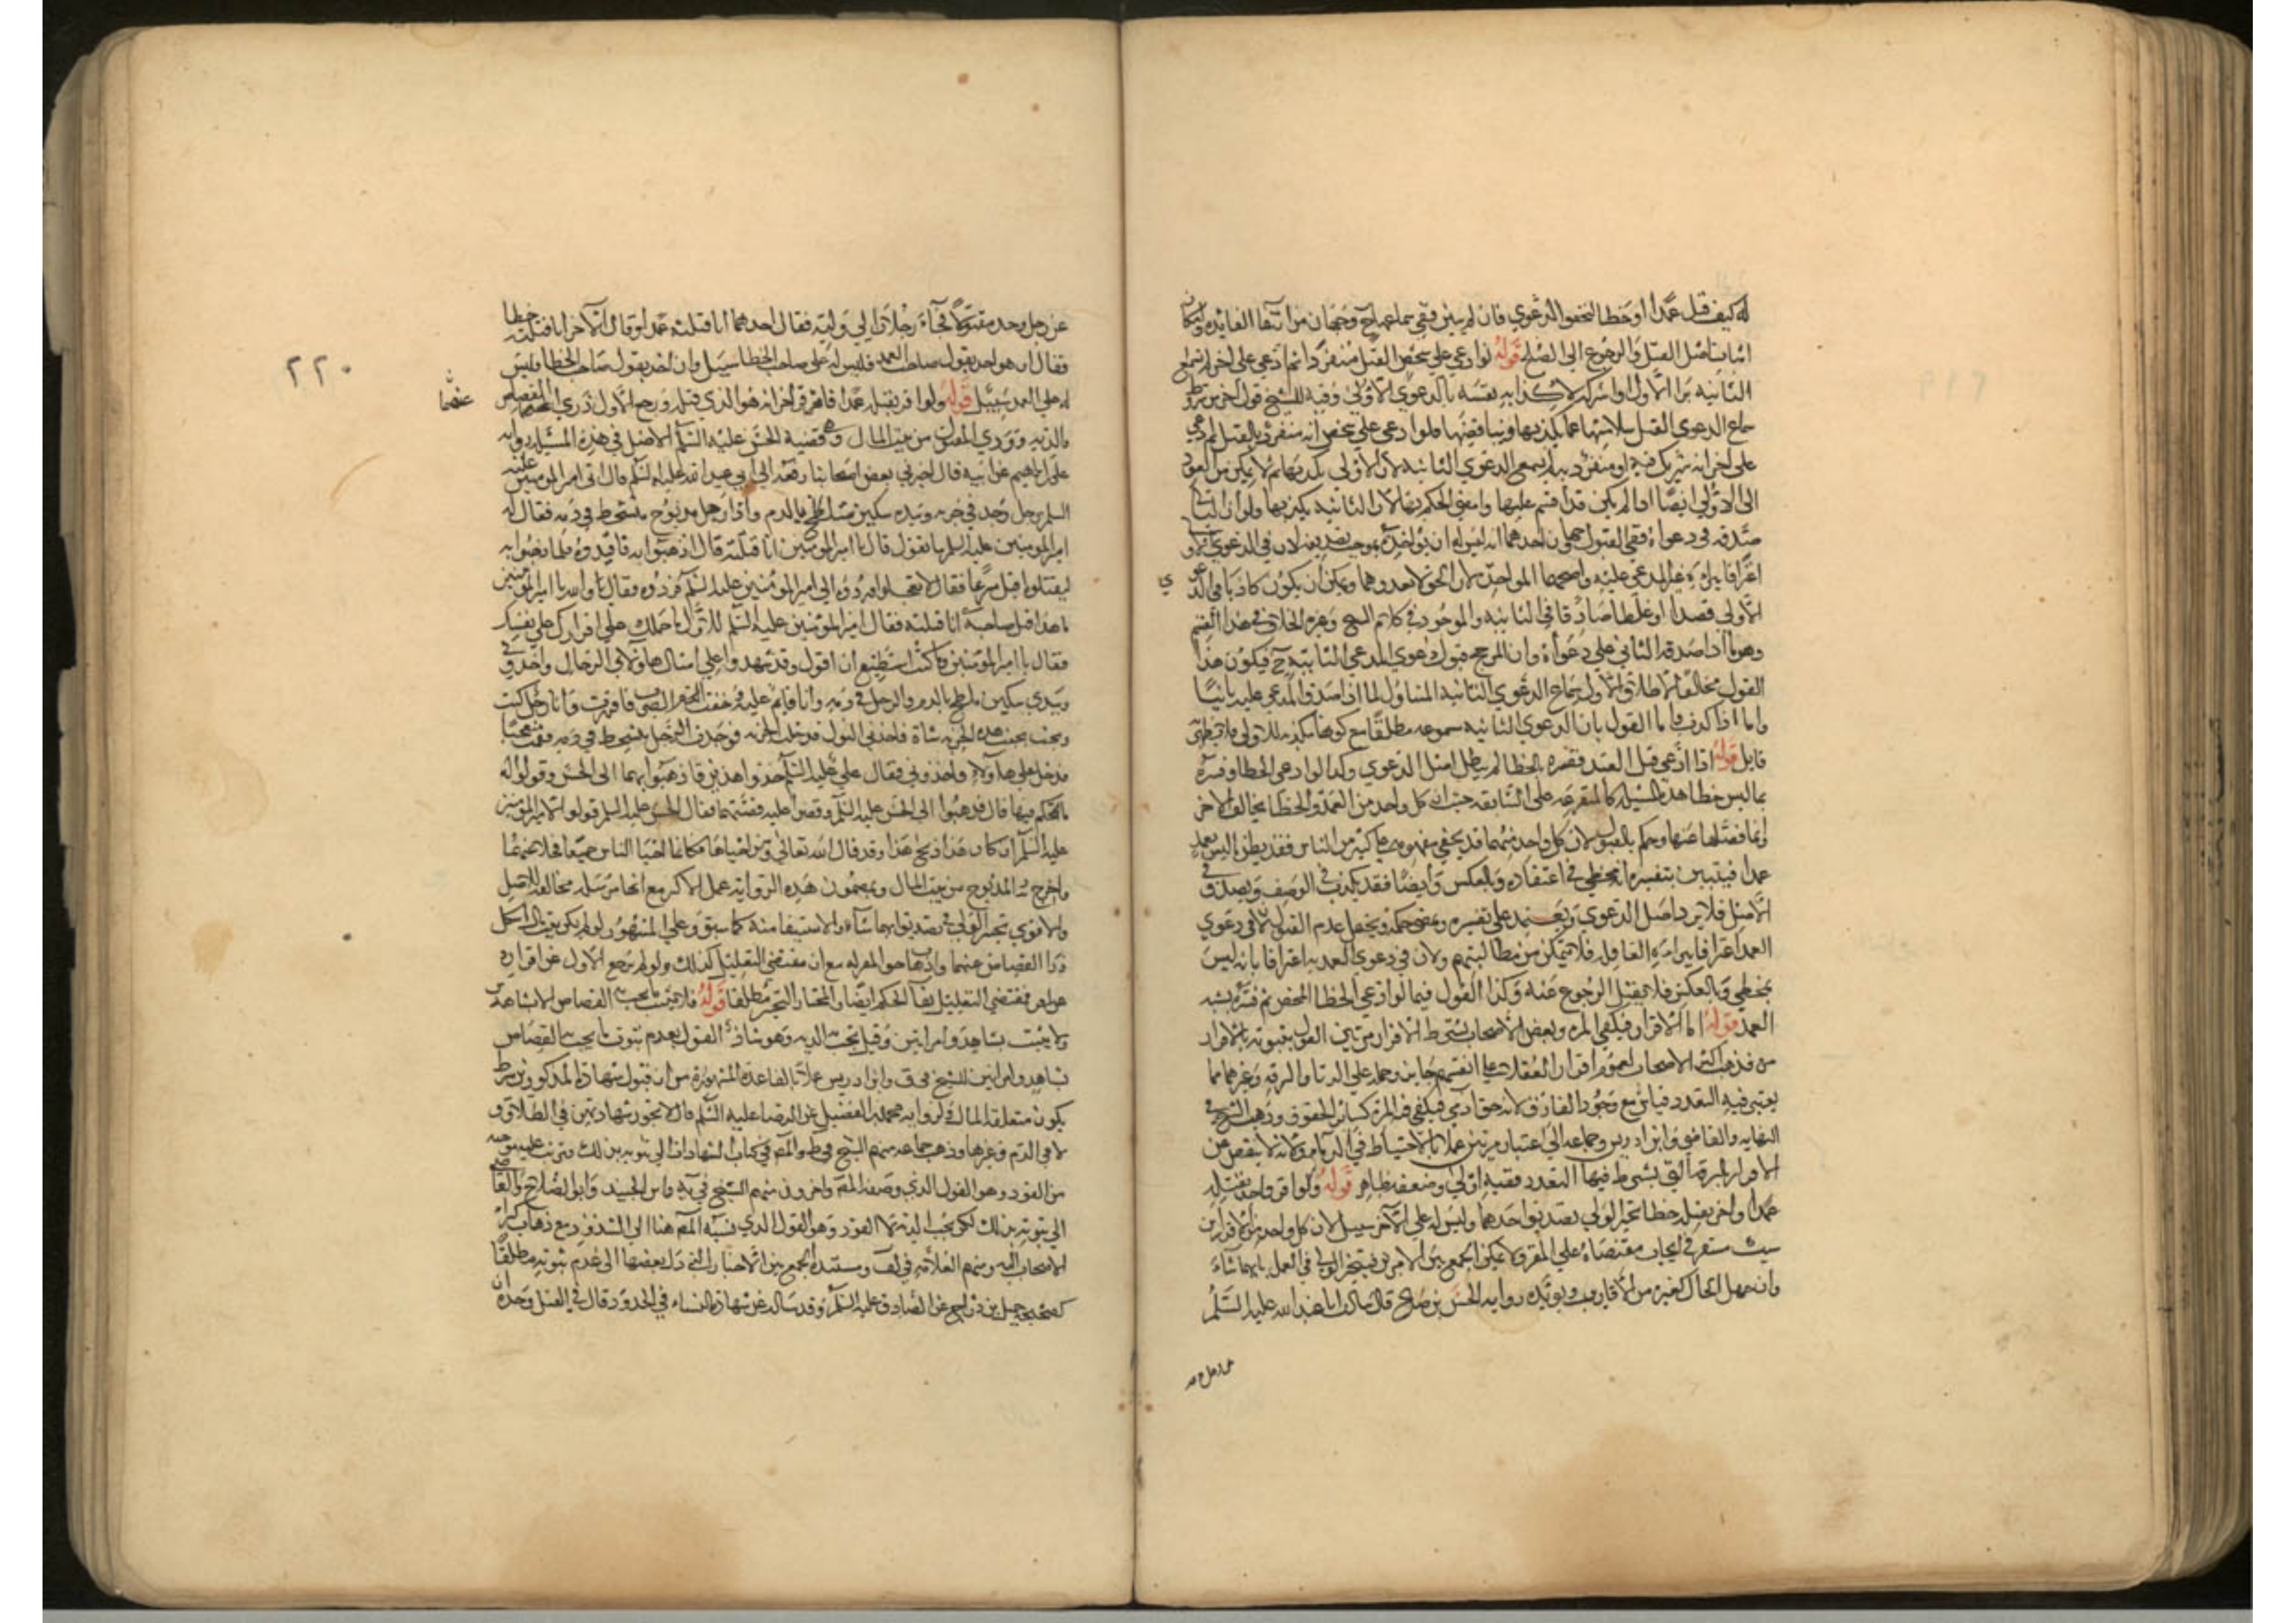 له كيف قتل عمدا او خطا لتخفوا الدعوى فان لم يبين ففي سماعها ح وجهان من انتفا الفايده
اثبات اصل القتل والرجوع الى الصلح قوله لو ادعى على شخص القتل منفردا ثم ادعى على اخر لم تسمع
الثانيه برا الاول او اشركه لاكذابه نفسه بالدعوى الاولى وفيه للشيخ قول اخر
سماع الدعوى القتل سلامتها عما يكذبها ويناقضها فلو ادعى على شخص انه منفرد بالقتل ثم ادعى
على اخر انه شريك فيه او منفرد به لم تسمع الدعوى الثانيه لان الاولى يكذبها ثم لا يمكن من العود
الى الاولى ايضا اذا لم يكن قد اقسم عليها وامضى الحكم بها لان الثانيه يكذبها ولو ان الثاني
صدقه في دعواه ففي القبول وجهان احدهما انه ليس له ان يواخذه بموجب تصديقه لان في الدعوى
اعترافا ببراءة غير المدعى عليه واصحهما المواخذه لان الحق لا يعدوهما ويمكن ان يكون كاذبا في الدعوى
الاولى قصدا او غلطا صادقا في الثانيه والموجود في كلام الشيخ وغيره الخلاف في هذا القسم
وهو ما اذا صدقه الثاني على دعواه وان المرجح قبول دعوى المدعي الثانيه ح فيكون هذا
القول مخالفا لاطلاق الاول سماع الدعوى الثانيه المتناول لما اذا صدق المدعى عليه ثانيا
واما اذا كذب فاما القول بان الدعوى الثانيه مسموعه مطلقا مع كونها مكذبه للاولى
قايل قوله اذا ادعى قتل العمد ففسره بالخطا لم يبطل اصل الدعوى وكذا لو ادعى الخطا وفسره
بما ليس خطا هذه المسئله كالمتفرعه على السابقه حيث ان كل واحد من العمد والخطا يخالف الاخر
وانما فصلها عنها وحكم بالقبول لان كل واحد منهما قد يخفى مفهومه على كثير من الناس فقد يظن ما ليس بعمد
عمدا فيتبين بتفسيره انه مخطي في اعتقاده وبالعكس وايضا فقد يكذب في الوصف ويصدق في
الاصل فلا يرد اصل الدعوى ويعتمد على تفسيره ويمضى حكمه ويحتمل عدم القبول لان في دعوى
العمد اعترافا ببراءة العاقله فلا يتمكن من مطالبتهم ولان في دعوى العمديه اعترافا بانه ليس
بمخطي وبالعكس فلا يقبل الرجوع عنه وكذا القول فيما لو ادعى الخطا المحض ثم فسره بشبه
العمد قوله اما الاقرار فيكفي المره وبعض الاصحاب يشترط الاقرار مرتين القول بثبوته بالاقرار
مره مذهب اكثر الاصحاب لعموم اقرار العقلاء على انفسهم جايز وحمله على الزنا والسرقه وغيرهما مما
يعتبر فيه التعدد قياس مع وجود الفارق لانه حق ادمي فيكفي فيه المره كساير الحقوق وذهب الشيخ في
النهايه والقاضي وابن ادريس وجماعه الى اعتبار مرتين عملا بالاحتياط في الدماء ولانه لا ينقص عن
الاقرار بالسرقه التي يشترط فيها التعدد ففيه اولى وضعفه ظاهر قوله ولو اقر واحد بقتله
عمدا واخر بقتله خطا تخير الولي تصديق احدهما وليس له على الاخر سبيل لان كل واحد من الاقرارين
سبب مستقر في ايجاب مقتضاه على المقر ولا يمكن الجمع بين الامرين فيتخير الولي في العمل بايهما شاء
وان جهل الحال كغيره من الاقارير ويويده روايه الحسن بن صالح قال سالت ابا عبد الله عليه السلم
عن رجل وجد
٢٢٠
عن رجل وجد مقتولا فجاء رجلان الى وليه فقال احدهما انا قتلته عمدا وقال الاخر انا قتلته خطا
فقال ان هو اخذ بقول صاحب العمد فليس له على صاحب الخطا سبيل وان اخذ بقول صاحب الخطا فليس
له على العمد سبيل قوله ولو اقر بقتله عمدا فاقر اخر انه هو الذي قتله ورجع الاول دري القصاص
والديه وودي المقتول من بيت المال وهي قضية الحسن عليه السلم الاصل في هذه المسئله روايه
علي بن ابراهيم عن ابيه قال اخبرني بعض اصحابنا رفعه الى ابي عبد الله عليه السلم قال اتى امير المومنين عليه
السلم برجل وجد في خربه وبيده سكين متلطخ بالدم واذا رجل مذبوح متشحط في دمه فقال له
امير المومنين عليه السلم ما تقول قال يا امير المومنين انا قتلته قال اذهبوا به فاقيدوه فلما ذهبوا به
ليقتلوه اقبل رجل مسرعا فقال لا تعجلوا وردوه الى امير المومنين عليه السلم فردوه فقال والله يا امير المومنين
ما هذا قتل صاحبه انا قتلته فقال امير المومنين عليه السلم للاول ما حملك على اقرارك على نفسك
فقال يا امير المومنين وما كنت استطيع ان اقول وقد شهدوا علي امثال هاولاي الرجال واخذوني
وبيدي سكين ملطخ بالدم والرجل في دمه وانا قايم عليه خفت الضرب فاقررت وانا رجل كنت
ذبحت بجنب هذه الخربه شاة فاخذني البول فدخلت الخربه فوجدت الرجل يتشحط في دمه فقمت متعجبا
فدخل علي هاولاء فاخذوني فقال علي عليه السلم خذوا هذين فاذهبوا بهما الى الحسن وقولوا له
ما الحكم فيها قال فذهبوا الى الحسن عليه السلم وقصوا عليه قصتهما فقال الحسن عليه السلم قولوا لامير المومنين
عليه السلم ان كان هذا ذبح هذا وقد قال الله تعالى ومن احياها فكانما احيا الناس جميعا فخلا عنهما
واخرج دية المذبوح من بيت المال وبمضمون هذه الروايه عمل الاكثر مع انها مرسله مخالفه للاصل
والاقوى تخير الولي في تصديق ايهما شاء والاستيفا منه كما سبق وعلى المشهور لو لم يكن بيت المال اشكل
درا القصاص عنهما واذهاب حق المقر له مع ان مقتضى التعليل كذلك ولو لم يرجع الاول عن اقراره
فمقتضى التعليل بقا الحكم ايضا والمختار التخير مطلقا قوله فلا يثبت ما يجب به القصاص الا بشاهدين
ولا يثبت بشاهد وامراتين وقيل يجب الديه وهو شاذ القول بعدم ثبوت ما يجب به القصاص
بشاهد وامراتين للشيخ في ف وابن ادريس عملا بالقاعده المشهوره من ان قبول شهادة المذكورين شرط
يكون متعلقه المال ولروايه محمد بن الفضيل عن الرضا عليه السلم قال لا تجوز شهادتهن في الطلاق و
لا في الدم وغيرها وذهب جماعه منهم الشيخ في ط والمص في كتاب الشهادات الى ثبوته بذلك
من القود وهو القول الذي وصفه المص واخرون منهم الشيخ في يه وابن الجنيد وابو الصلاح والقاضي
الى ثبوته بذلك لكن يجب الديه لا القود وهو القول الذي نسبه المص هنا الى الشذوذ مع ذهاب كثير من
الاصحاب اليه ومنهم العلامه في لف ومستنده الجمع بين الاخبار التي دل بعضها الى عدم ثبوته مطلقا
كصحيحة جميل بن دراج عن الصادق عليه السلم وقد ساله عن شهادة النساء في الحدود قال في القتل وحده